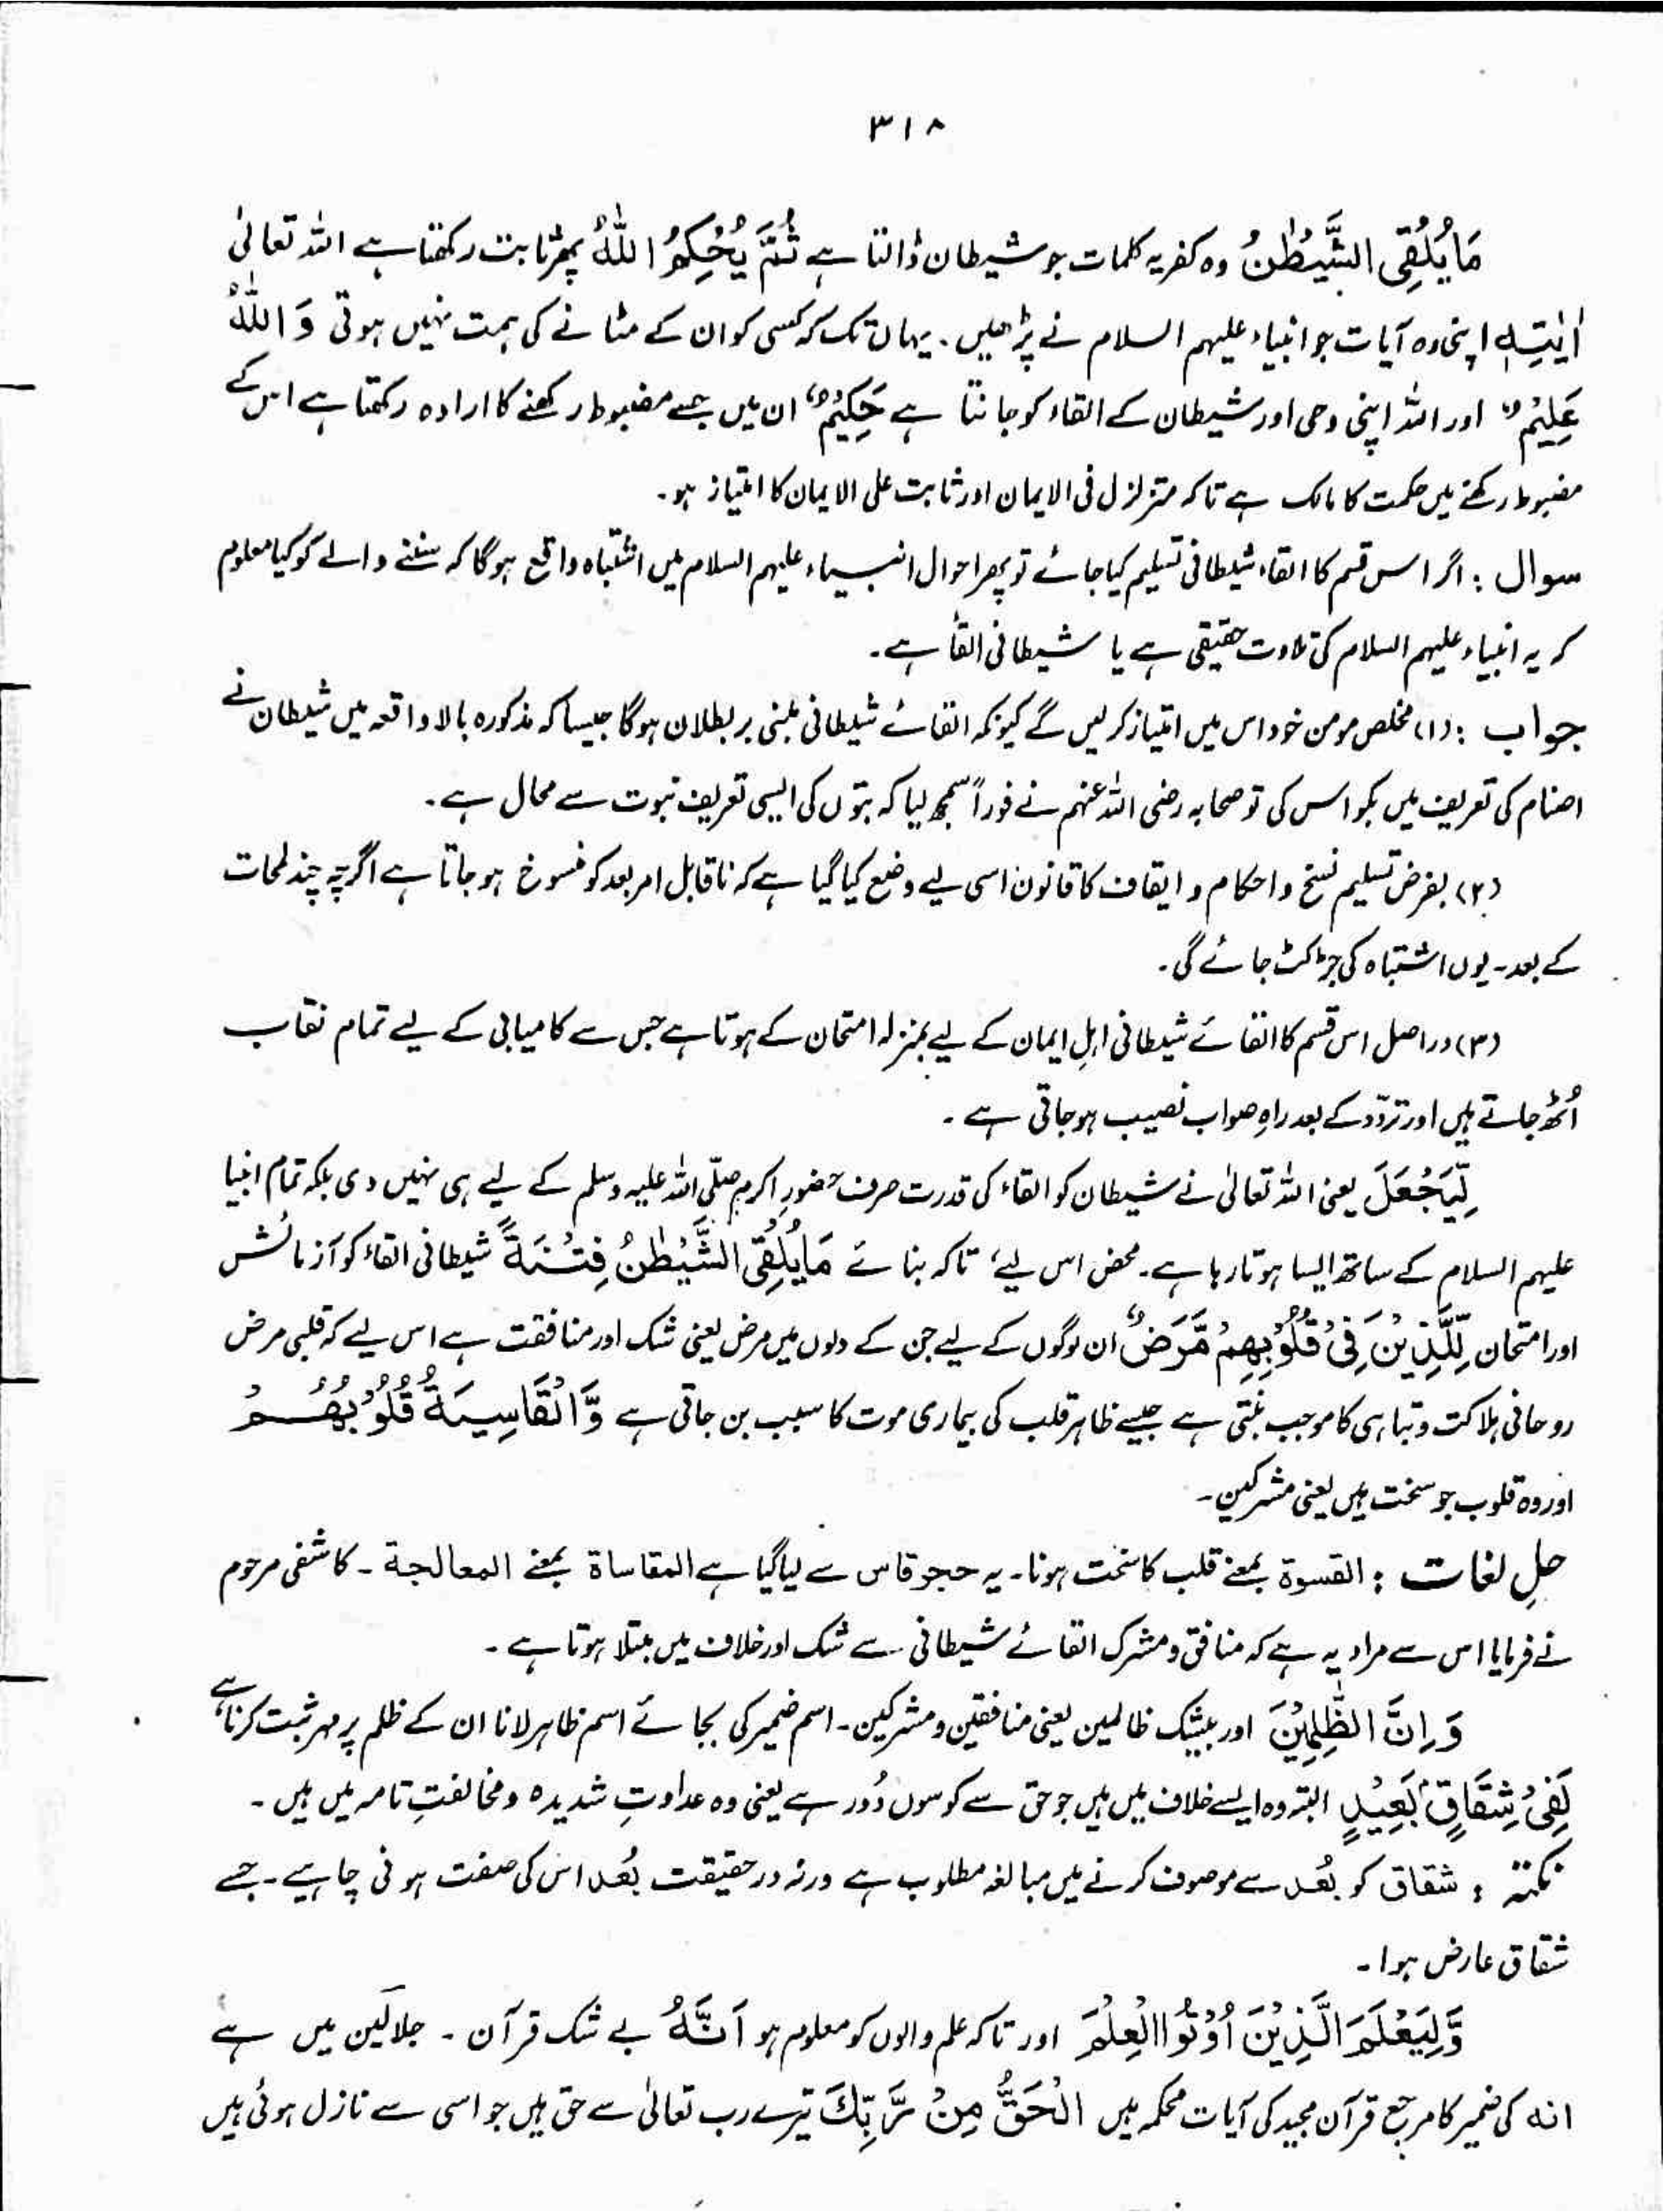 ۳۱۸
مَا یُلْقِی الشَّیْطٰنُ وہ کفریہ کلمات جو شیطان ڈالتا ہے ثُمَّ یُحْکِمُ اللّٰہُ پھر ثابت رکھتا ہے اللہ تعالیٰ
اٰیٰتِہٖ اپنی وہ آیات جو انبیاء علیہم السلام نے پڑھیں۔ یہاں تک کہ کسی کو ان کے مٹانے کی ہمت نہیں ہوتی وَ اللّٰہُ
عَلِیْمٌ اور اللہ اپنی وحی اور شیطان کے القاء کو جانتا ہے حَکِیْمٌ ان میں جسے مضبوط رکھنے کا ارادہ رکھتا ہے اس کے
مضبوط رکھنے میں حکمت کا مالک ہے تاکہ متزلزل فی الایمان اور ثابت علی الایمان کا امتیاز ہو۔
سوال : اگر اس قسم کا القاء شیطانی تسلیم کیا جائے تو پھر احوال انبیاء علیہم السلام میں اشتباہ واقع ہوگا کہ سننے والے کو کیا معلوم
کہ یہ انبیاء علیہم السلام کی تلاوت حقیقی ہے یا شیطانی القأ ہے۔
جواب : (۱) مخلص مومن خود اس میں امتیاز کر لیں گے کیونکہ القائے شیطانی مبنی بر بطلان ہوگا جیسا کہ مذکورہ بالا واقعہ میں شیطان نے
اصنام کی تعریف میں بکواس کی تو صحابہ رضی اللہ عنہم نے فوراً سمجھ لیا کہ بتوں کی ایسی تعریف نبوت سے محال ہے۔
(۲) بفرض تسلیم نسخ و احکام و ایقاف کا قانون اسی لیے وضع کیا گیا ہے کہ ناقابل امر بعد کو منسوخ ہو جاتا ہے اگرچہ چند لمحات
کے بعد۔ یوں اشتباہ کی جڑ کٹ جائے گی۔
(۳) دراصل اس قسم کا القائے شیطانی اہلِ ایمان کے لیے بمنزلہ امتحان کے ہوتا ہے جس سے کامیابی کے لیے تمام نقاب
اُٹھ جاتے ہیں اور تردّد کے بعد راہِ صواب نصیب ہو جاتی ہے۔
لِّیَجْعَلَ یعنی اللہ تعالیٰ نے شیطان کو القاء کی قدرت صرف حضورِ اکرم صلّی اللہ علیہ وسلم کے لیے ہی نہیں دی بلکہ تمام انبیا
علیہم السلام کے ساتھ ایسا ہوتا رہا ہے۔ محض اس لیے تاکہ بنائے مَا یُلْقِی الشَّیْطٰنُ فِتْنَۃً شیطانی القاء کو آزمائش
اور امتحان لِّلَّذِیْنَ فِیْ قُلُوْبِهِمْ مَّرَضٌ ان لوگوں کے لیے جن کے دلوں میں مرض یعنی شک اور منافقت ہے اس لیے کہ قلبی مرض
روحانی ہلاکت و تباہی کا موجب بنتی ہے جیسے ظاہر قلب کی بیماری موت کا سبب بن جاتی ہے وَّ الْقَاسِیَۃُ قُلُوْبُهُمْ
اور وہ قلوب جو سخت ہیں یعنی مشرکین۔
حلِ لغات : القسوة بمعنے قلب کا سخت ہونا۔ یہ حجر قاس سے لیا گیا ہے المقاساة بمعنے المعالجة ۔ کاشفی مرحوم
نے فرمایا اس سے مراد یہ ہے کہ منافق و مشرک القائے شیطانی سے شک اور خلاف میں مبتلا ہوتا ہے۔
وَ اِنَّ الظّٰلِمِیْنَ اور بیشک ظالمین یعنی منافقین و مشرکین۔ اسم ضمیر کی بجائے اسم ظاہر لانا ان کے ظلم پر مہر ثبت کرنا ہے
لَفِیْ شِقَاقٍۭ بَعِیْدٍ البتہ وہ ایسے خلاف میں ہیں جو حق سے کوسوں دُور ہے یعنی وہ عداوتِ شدیدہ و مخالفتِ تامہ میں ہیں۔
نکتہ : شقاق کو بُعد سے موصوف کرنے میں مبالغہ مطلوب ہے ورنہ درحقیقت بُعد اس کی صفت ہونی چاہیے۔ جسے
شقاق عارض ہوا۔
وَّلِیَعْلَمَ الَّذِیْنَ اُوْتُوا الْعِلْمَ اور تاکہ علم والوں کو معلوم ہو اَنَّہُ بے شک قرآن ۔ جلالین میں ہے
انہ کی ضمیر کا مرجع قرآن مجید کی آیات محکمہ ہیں الْحَقُّ مِنْ رَّبِّكَ تیرے رب تعالیٰ سے حق ہیں جو اسی سے نازل ہوئی ہیں